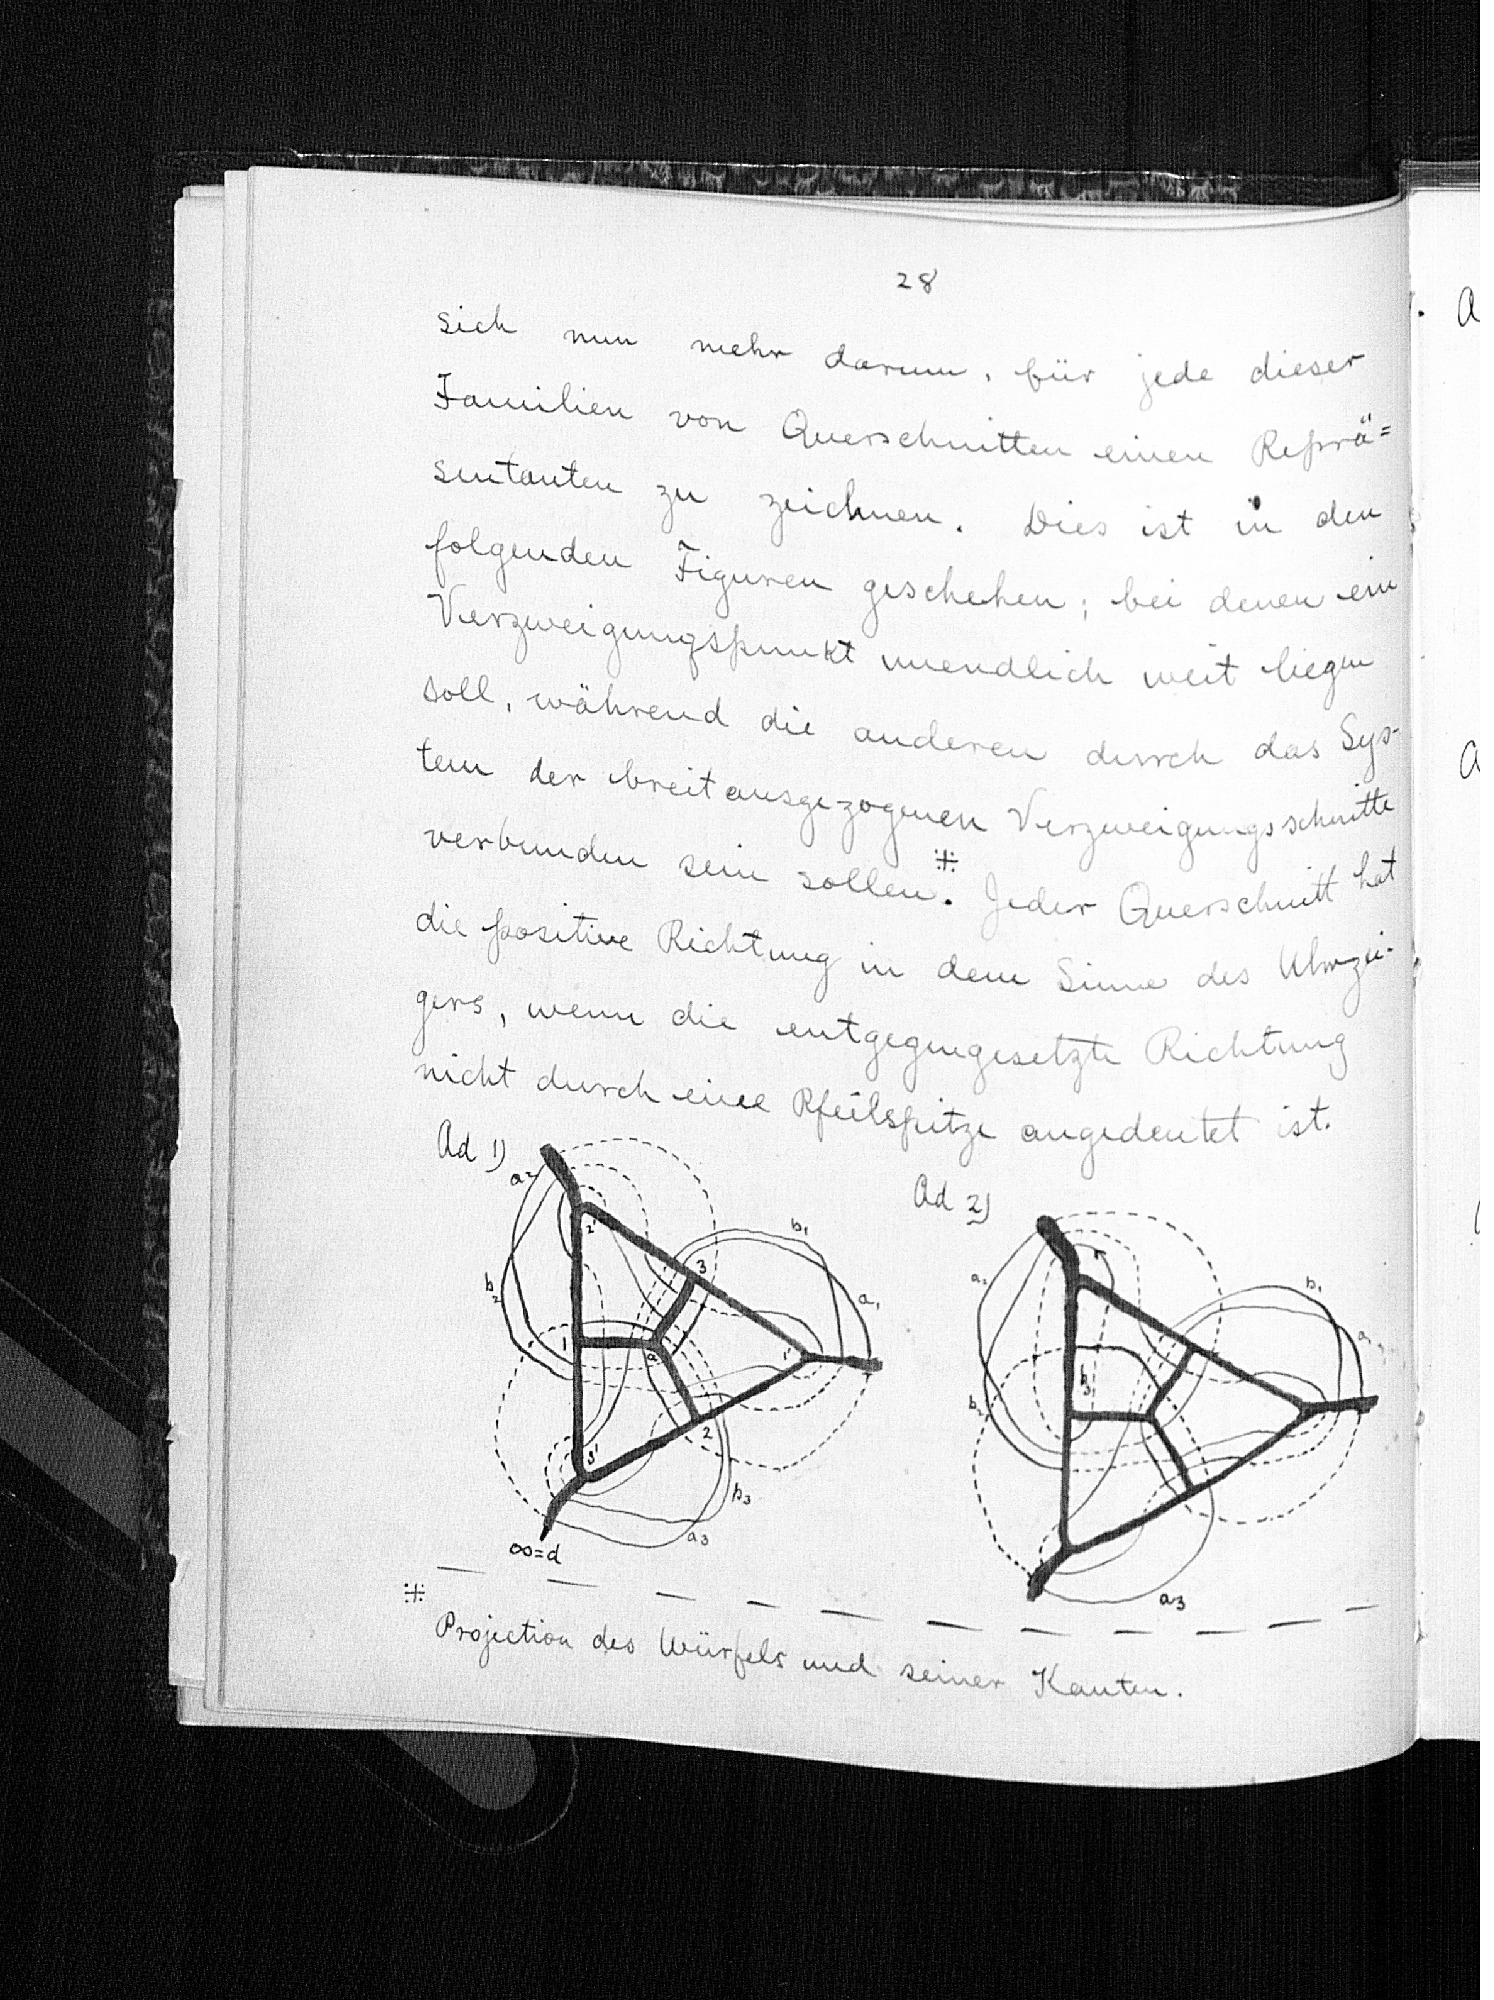 28
sich nun mehr darum, für jede dieser
Familien von Querschnitten einen Reprä=
sentanten zu zeichnen. Dies ist in den
folgenden Figuren geschehen; bei denen ein
Verzweigungspunkt unendlich weit liegen
soll, während die anderen durch das Sys-
tem der breit ausgezogenen Verzweigungsschnitte
verbunden sein sollen.⁜ Jeder Querschnitt hat
die positive Richtung in dem Sinne des Uhrzei-
gers, wenn die entgegengesetzte Richtung
nicht durch eine Pfeilspitze angedeutet ist.
Ad 1)
a2
2'
b1
b2
3
a1
1
a
1'
3'
2
b3
a3
∞=d
Ad 2)
a2
b1
a1
b3
b2
a3
⁜
Projection des Würfels und seiner Kanten.